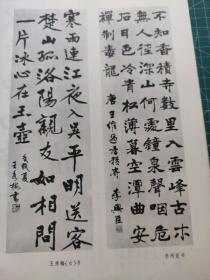 不知香積寺數里入雲峰古木
無人徑深山何處鐘泉聲咽危
石日色冷青松薄暮空潭曲安
禪制毒龍
唐王維過香積寺 李興臣
寒雨連江夜入吳平明送客
楚山孤洛陽親友如相問
一片冰心在玉壺
王秀梅書
王秀梅(女)书